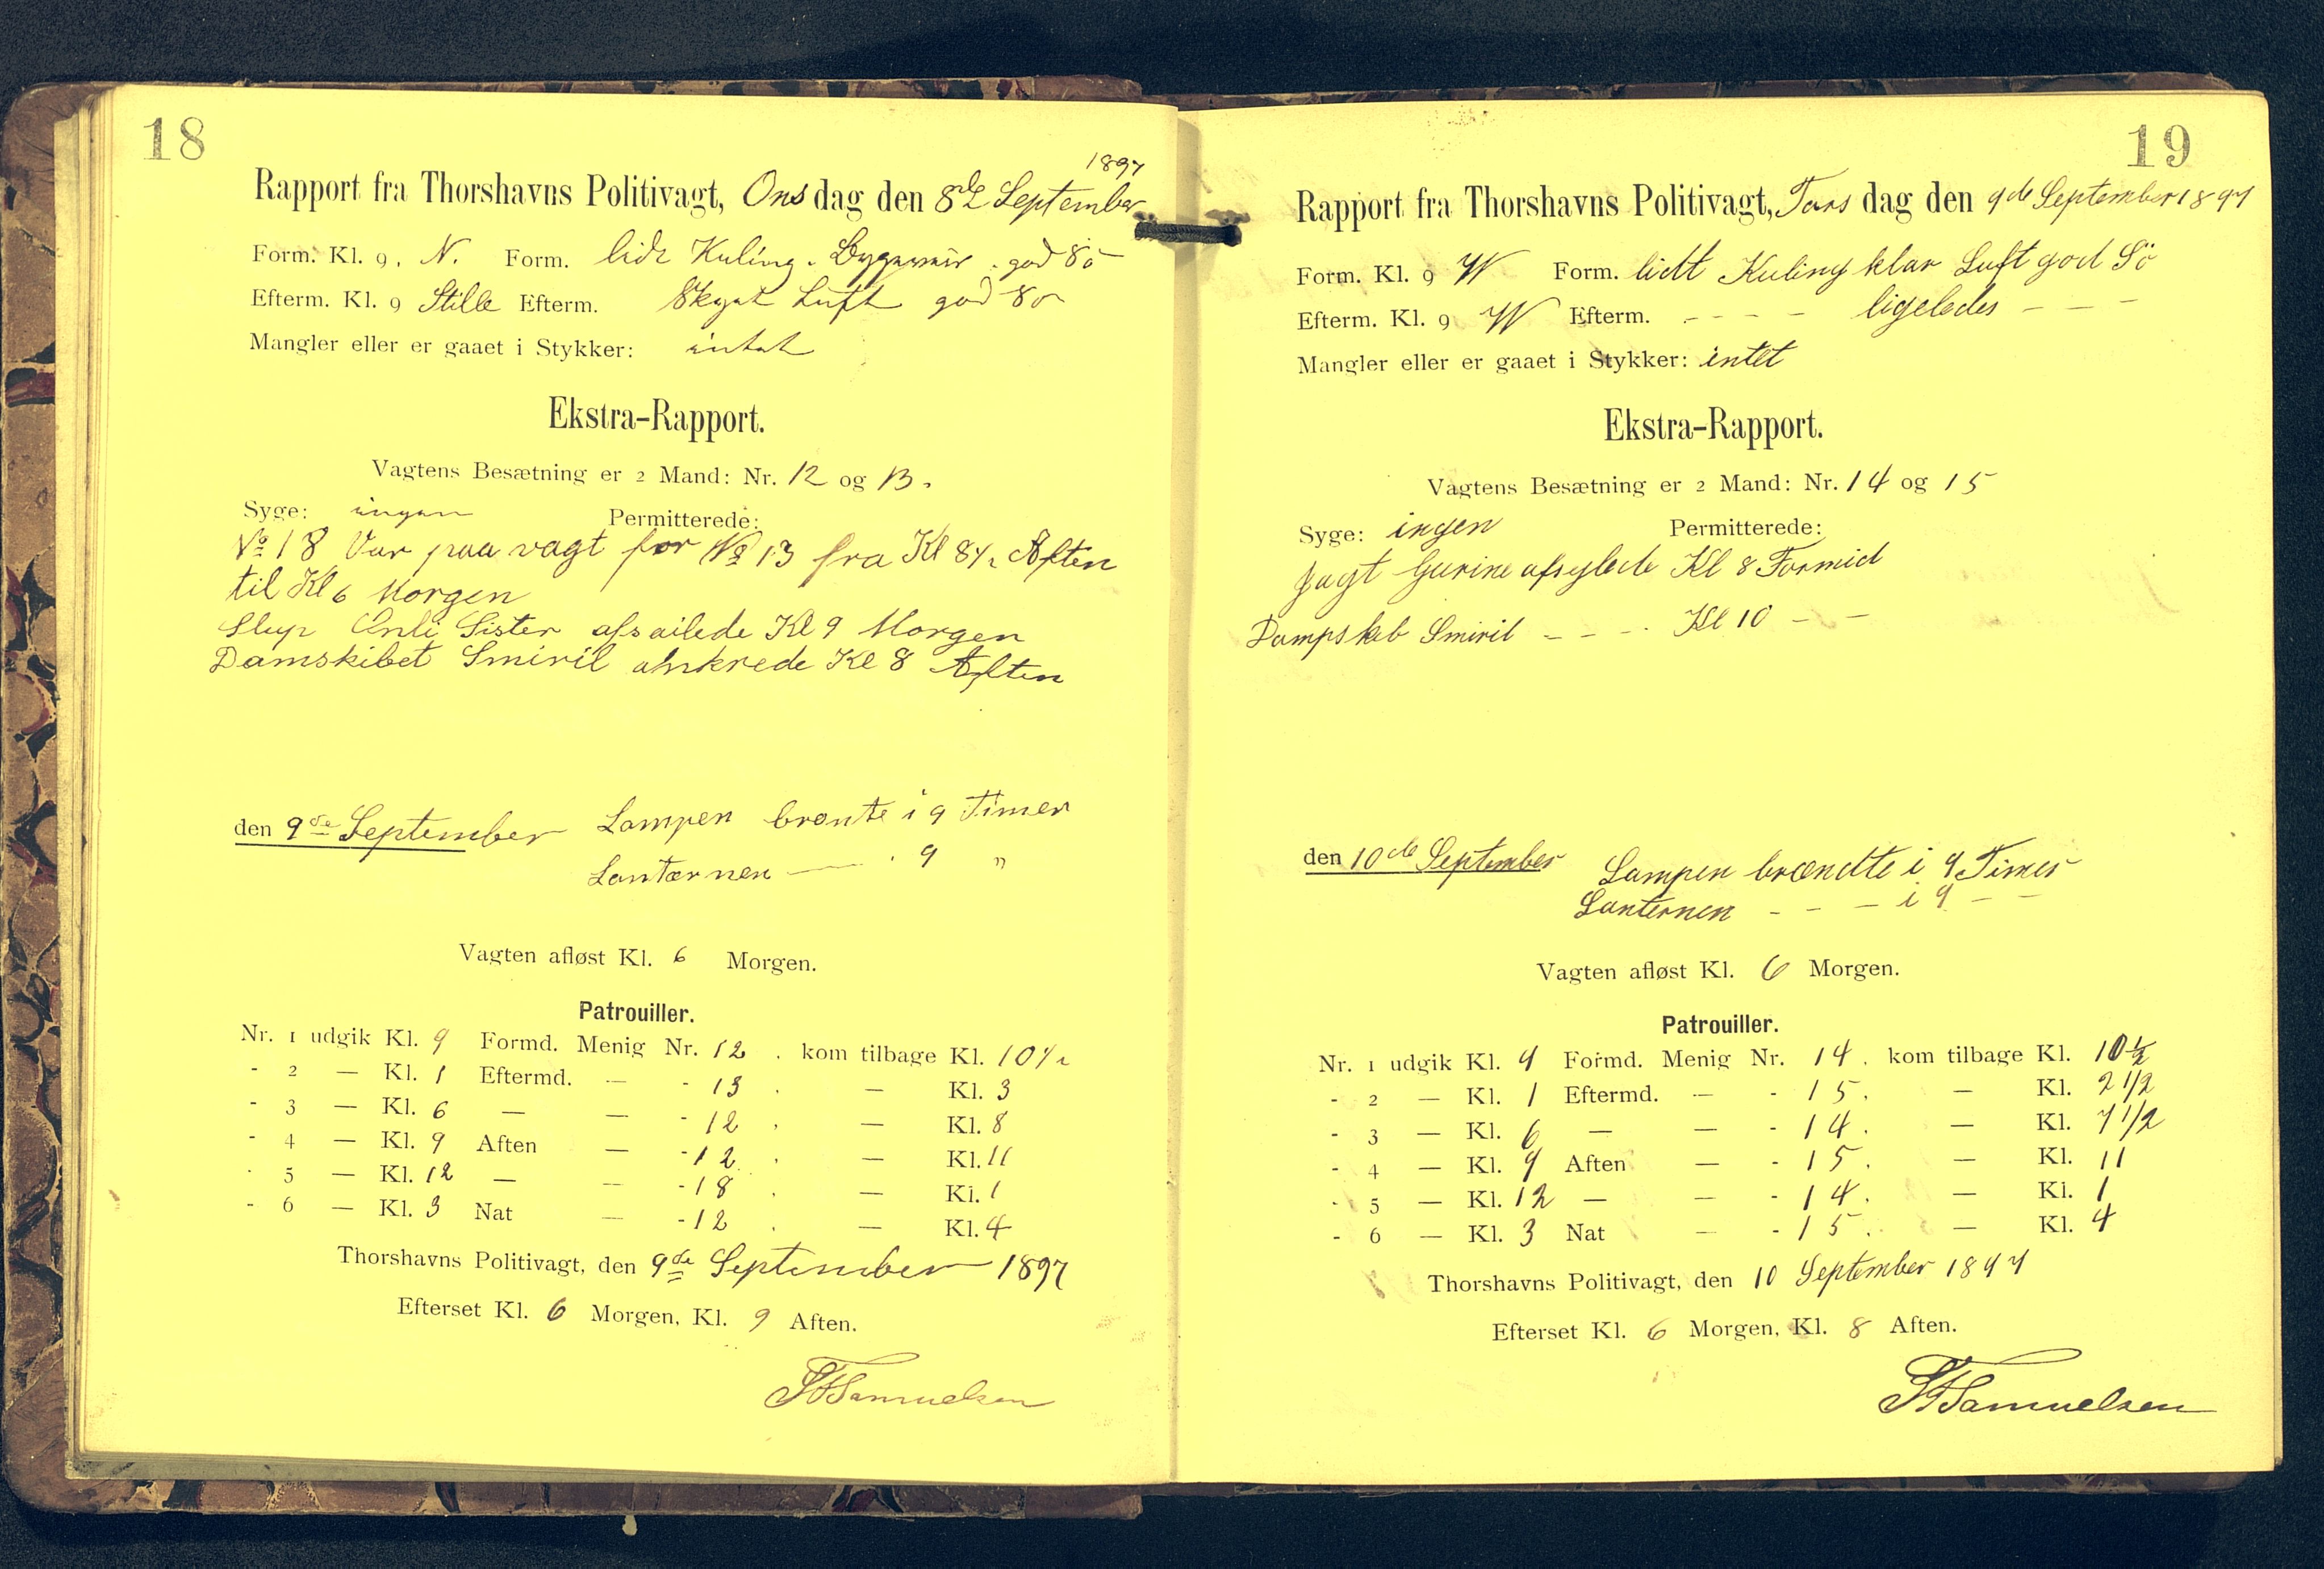 18
1897
Rapport fra Thorshavns Politivagt, Onsdag den 8de September
Form. Kl. 9. N. Form. lidt Kuling. Bygeveir. god Sö
Efterm. Kl. 9 Stille Efterm. Skyet Luft god Sö
Mangler eller er gaaet i Stykker: intet
Ekstra-Rapport.
Vagtens Besætning er 2 Mand: Nr. 12 og 13.
Syge: ingen Permitterede:
No 18 Var paa vagt for No 13 fra Kl 8½ Aften
til Kl 6 Morgen
Slup Sister afsailede Kl 9 Morgen
Damskibet Smiril ankrede Kl 8 Aften
den 9de September Lampen brænte i 9 Timer
Lantærnen — . 9 "
Vagten afløst Kl. 6 Morgen.
Patrouiller.
Nr. 1 udgik Kl. 9 Formd. Menig Nr. 12 . kom tilbage Kl. 10½
- 2 — Kl. 1 Eftermd. — - 13 . — Kl. 3
- 3 — Kl. 6 — — - 12 . — Kl. 8
- 4 — Kl. 9 Aften — - 12 . — Kl. 11
- 5 — Kl. 12 — — - 18 . — Kl. 1
- 6 — Kl. 3 Nat — - 12 . — Kl. 4
Thorshavns Politivagt, den 9de September 1897
Efterset Kl. 6 Morgen, Kl. 9 Aften.
Samuelsen
19
Rapport fra Thorshavns Politivagt, Torsdag den 9de September 1897
Form. Kl. 9 W Form. lidt Kuling klar Luft god Sö
Efterm. Kl. 9 W Efterm. - - - - ligeledes - - -
Mangler eller er gaaet i Stykker: intet
Ekstra-Rapport.
Vagtens Besætning er 2 Mand: Nr. 14 og 15
Syge: ingen Permitterede:
Jagt Gurine afsylede Kl 8 Formid
Dampskib Smiril - - - Kl 10 - -
den 10de September Lampen brændte i 9 Timer
Lanternen - - - i 9 - -
Vagten afløst Kl. 6 Morgen.
Patrouiller.
Nr. 1 udgik Kl. 9 Formd. Menig Nr. 14 . kom tilbage Kl. 10½
- 2 — Kl. 1 Eftermd. — - 15 . — Kl. 2 1/2
- 3 — Kl. 6 — — - 14 . — Kl. 7 1/2
- 4 — Kl. 9 Aften — - 15 . — Kl. 11
- 5 — Kl. 12 — — - 14 . — Kl. 1
- 6 — Kl. 3 Nat — - 15 . — Kl. 4
Thorshavns Politivagt, den 10 September 1897
Efterset Kl. 6 Morgen, Kl. 8 Aften.
Samuelsen